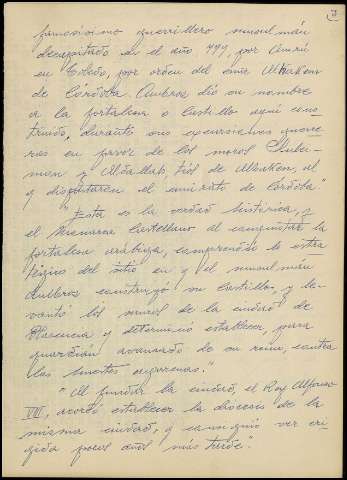 3
famosísimo guerrillero musulmán
decapitado en el año 499, por Amrú
en Toledo, por orden del emir Alhaken
de Córdoba. Ambroz dió su nombre
a la fortaleza o Castillo aquí cons-
truido, durante sus excursiones guerre-
ras en favor de los moros Suler-
man y Abdallah, tios de Alhaken, al
q disputaron el emirato de Córdoba"
"Esta es la verdad histórica, y
el Monarca Castellano al conquistar la
fortaleza arabiza, comprendió lo estra
tégico del sitio en q el musulmán
Ambroz construyó su Castillo, y le-
vantó los muros de la ciudad de
Plasencia y determinó establecer, para
guardián avanzado de su reino, contra
las huestes agarenas."
"Al fundar la ciudad, el Rey Alfonso
VIII, acordó establecer la diócesis de la
misma ciudad, y consiguió ver eri-
gida pocos años más tarde".